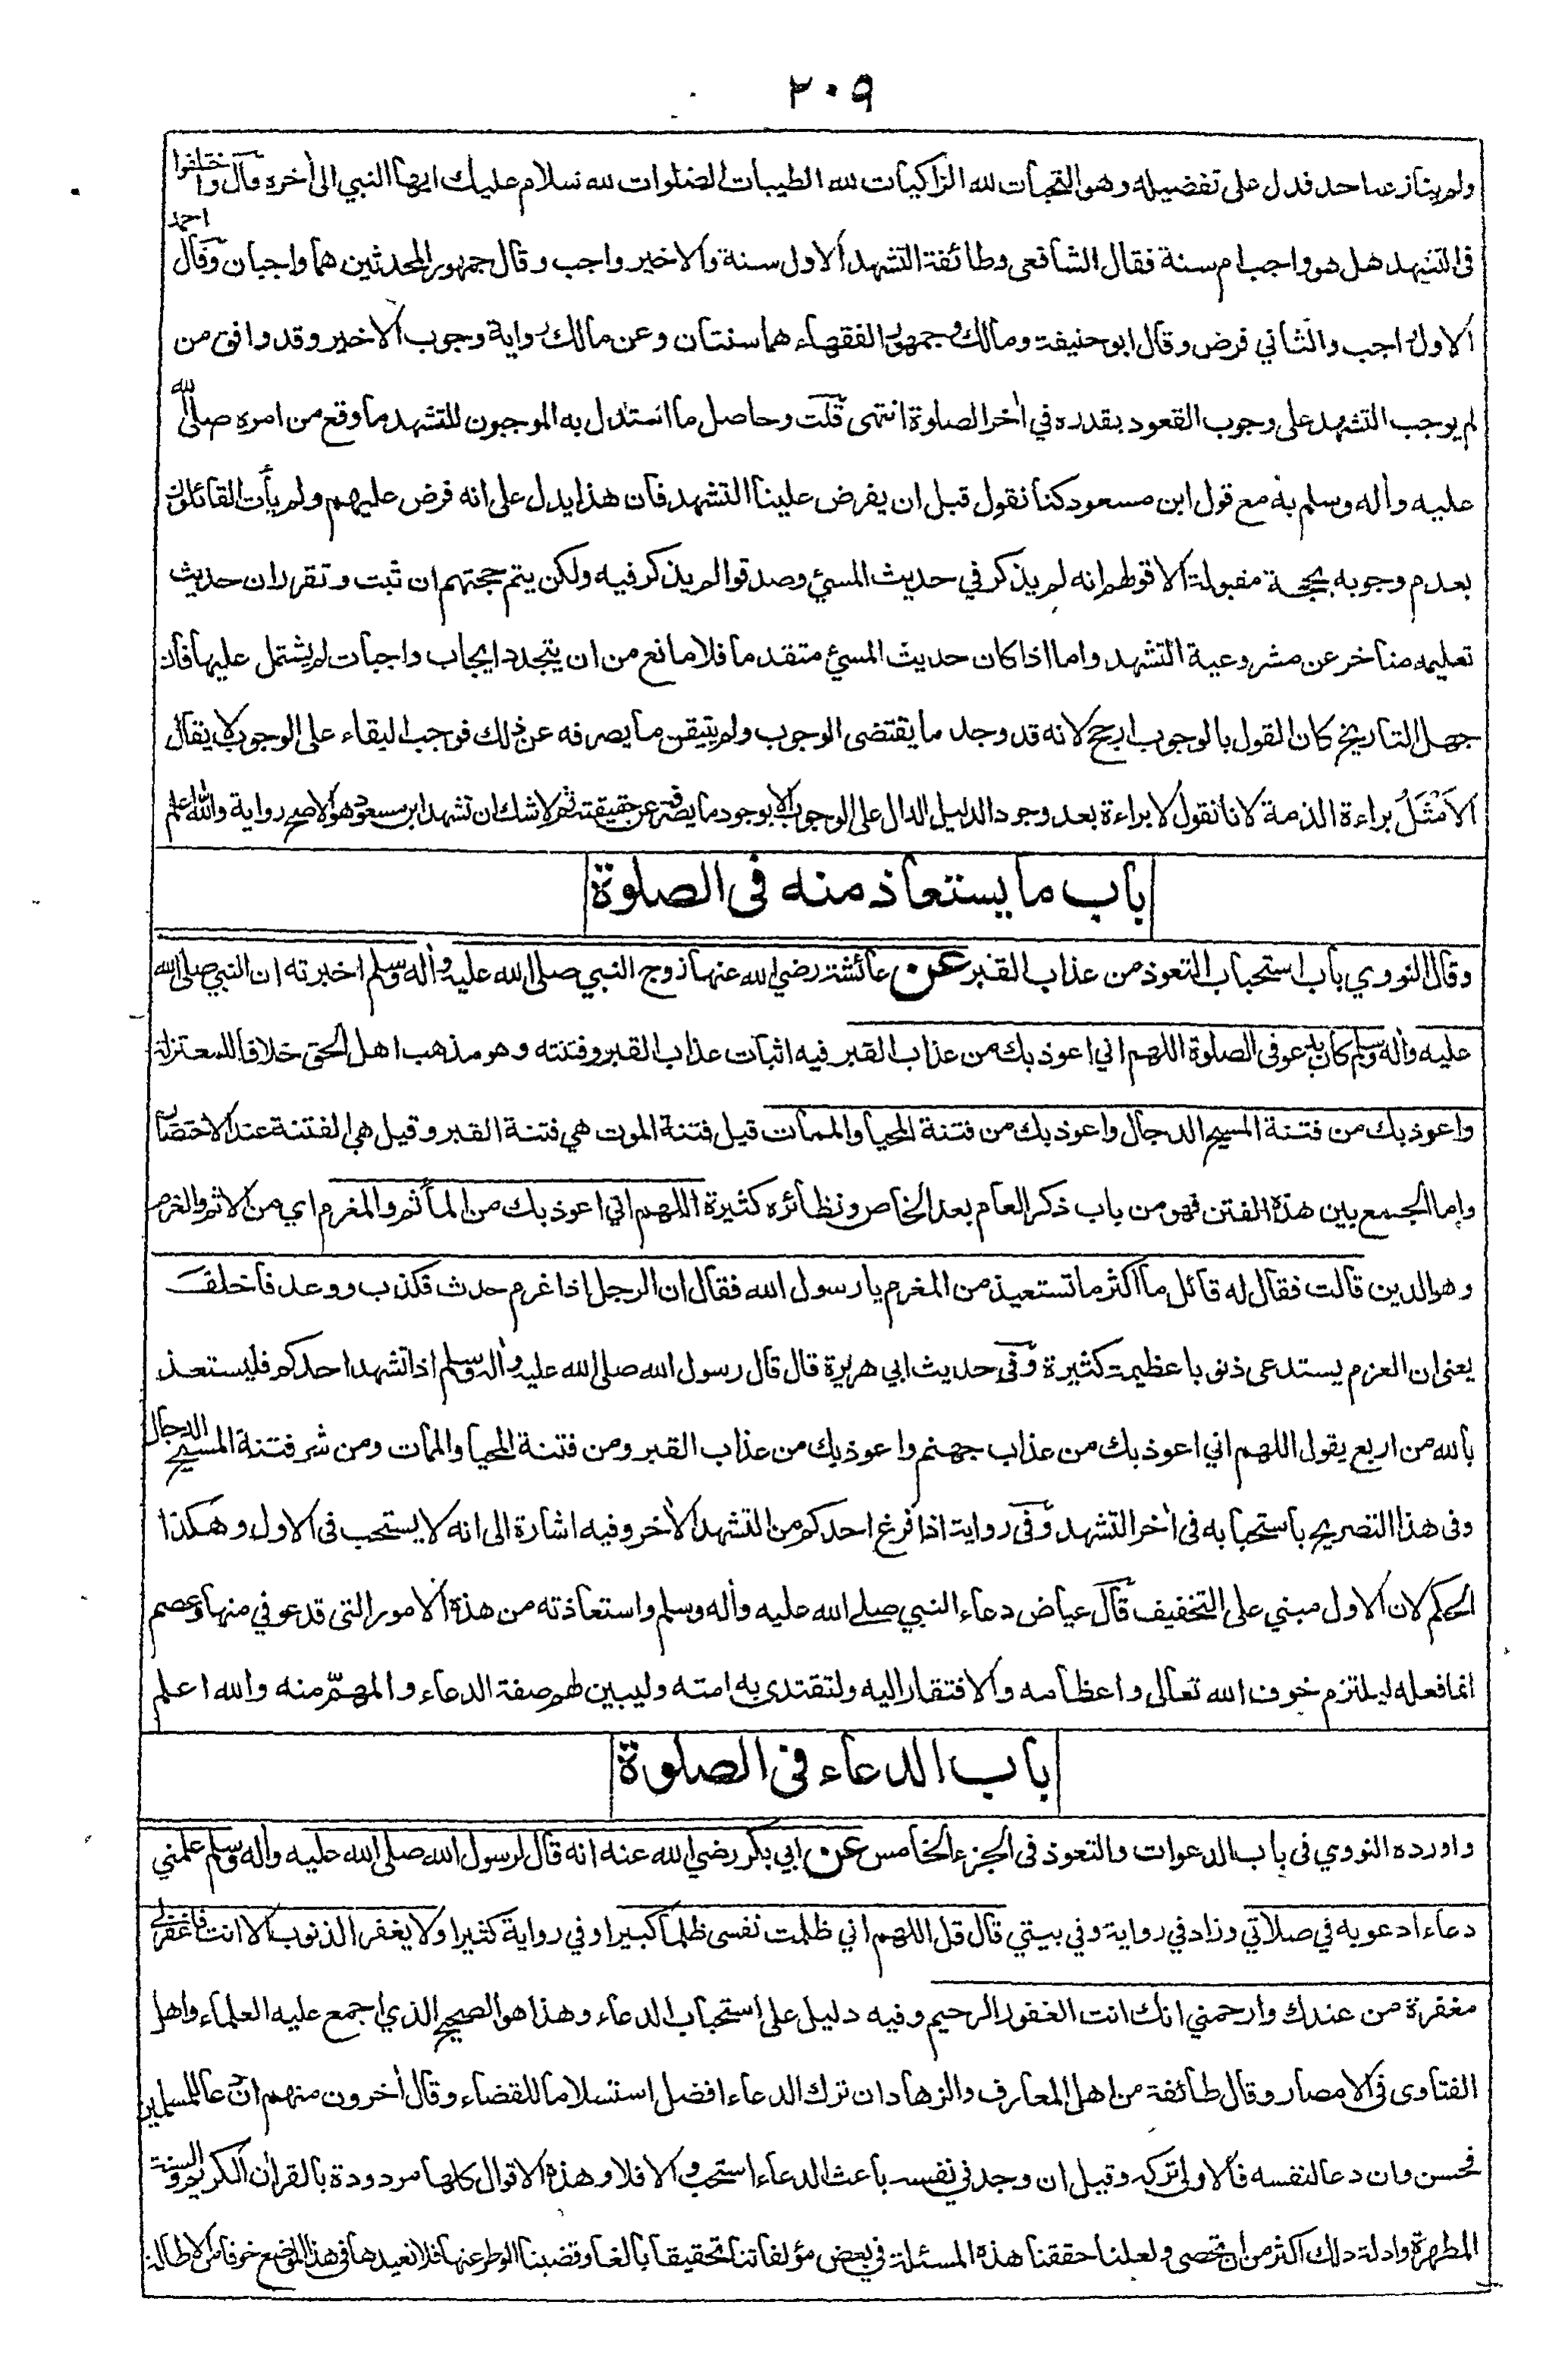 ٢٠٩
ولم ينازعه احد فدل على تفضيله وهو التحيات لله الزاكيات لله الطيبات الصلوات لله سلام عليك ايها النبي الى اٰخره قال واختلفوا
فى التشهد هل هو واجب ام سنة فقال الشافعى وطائفة التشهد الاول سنة والاخير واجب وقال جمهور المحدثين هما واجبان وقال احمد
الاول واجب والثاني فرض وقال ابو حنيفة ومالك وجمهور الفقهاء هما سنتان وعن مالك رواية وجوب الاخير وقد وافق من
لم يوجب التشهد على وجوب القعود بقدره في اٰخر الصلوة انتهى قلت وحاصل ما استدل به الموجبون للتشهد ما وقع من امره صلى الله
عليه واٰله وسلم به مع قول ابن مسعود كنا نقول قبل ان يفرض علينا التشهد فان هذا يدل على انه فرض عليهم ولم يأت القائلون
بعدم وجوبه بحجة مقبولة الا قولهم انه لم يذكر في حديث المسئ وصدقوا لم يذكر فيه ولكن يتم حجتهم ان ثبت وتقرر ان حديث
تعليمه متاخر عن مشروعية التشهد واما اذا كان حديث المسئ متقدما فلا مانع من ان يتجدد ايجاب واجبات لم يشتمل عليها فان
جهل التاريخ كان القول بالوجوب ارجح لانه قد وجد ما يقتضى الوجوب ولم يتيقن ما يصرفه عن ذلك فوجب البقاء على الوجوب لا يقال
الاَصْلُ براءة الذمة لانا نقول لا براءة بعد وجود الدليل الدال على الوجوب الا بوجود ما يصرفه عن حقيقته ثم لا شك ان تشهد ابن مسعود هو الاصح رواية والله اعلم
باب ما يستعاذ منه فى الصلوة
وقال النووي باب استحباب التعوذ من عذاب القبر عن عائشة رضي الله عنها زوج النبي صلى الله عليه واٰله وسلم اخبرته ان النبي صلى الله
عليه واٰله وسلم كان يدعو فى الصلوة اللهم اني اعوذ بك من عذاب القبر فيه اثبات عذاب القبر وفتنته وهو مذهب اهل الحق خلافا للمعتزلة
واعوذ بك من فتنة المسيح الدجال واعوذ بك من فتنة المحيا والممات قيل فتنة الموت هي فتنة القبر وقيل هي الفتنة عند الاحتضار
واما الجمع بين هذه الفتن فهو من باب ذكر العام بعد الخاص ونظائره كثيرة اللهم اني اعوذ بك من المأثم والمغرم اي من الاثم والغرم
وهو الدين قالت فقال له قائل ما اكثر ما تستعيذ من المغرم يا رسول الله فقال ان الرجل اذا غرم حدث فكذب ووعد فاخلف
يعنى ان الغرم يستدعى ذنوبا عظيمة كثيرة وفى حديث ابي هريرة قال قال رسول الله صلى الله عليه واٰله وسلم اذا تشهد احدكم فليستعذ
بالله من اربع يقول اللهم اني اعوذ بك من عذاب جهنم واعوذ بك من عذاب القبر ومن فتنة المحيا والممات ومن شر فتنة المسيح الدجال
وفى هذا التصريح باستحبابه فى اٰخر التشهد وفى رواية اذا فرغ احدكم من التشهد الاٰخر وفيه اشارة الى انه لا يستحب فى الاول وهكذا
الحكم لان الاول مبني على التخفيف قال عياض دعاء النبي صلى الله عليه واٰله وسلم واستعاذته من هذه الامور التى قد عوفي منها وعصم
انما فعله ليلتزم خوف الله تعالى واعظامه والافتقار اليه ولتقتدي به امته وليبين لهم صفة الدعاء والمهمّ منه والله اعلم
باب الدعاء فى الصلوة
واورده النووي فى باب الدعوات والتعوذ فى الجزء الخامس عن ابي بكر رضي الله عنه انه قال لرسول الله صلى الله عليه واٰله وسلم علمني
دعاء ادعو به في صلاتي وزاد في رواية وفي بيتي قال قل اللهم اني ظلمت نفسى ظلما كبيرا وفي رواية كثيرا ولا يغفر الذنوب الا انت فاغفرلي
مغفرة من عندك وارحمني انك انت الغفور الرحيم وفيه دليل على استحباب الدعاء وهذا هو الصحيح الذي اجمع عليه العلماء واهل
الفتاوى فى الامصار وقال طائفة من اهل المعارف والزهاد ان ترك الدعاء افضل استسلاما للقضاء وقال اٰخرون منهم ان دعا للمسلمين
فحسن وان دعا لنفسه فالاولى تركه وقيل ان وجد في نفسه باعث الدعاء استحب والا فلا وهذه الاقوال كلها مردودة بالقراٰن الكريم والسنة
المطهرة وادلة ذلك اكثر من ان تحصى ولعلنا حققنا هذه المسئلة في بعض مؤلفاتنا تحقيقا بالغا وقضينا الوطر عنها فلا نعيدها فى هذا الموضع خوفا من الاطالة